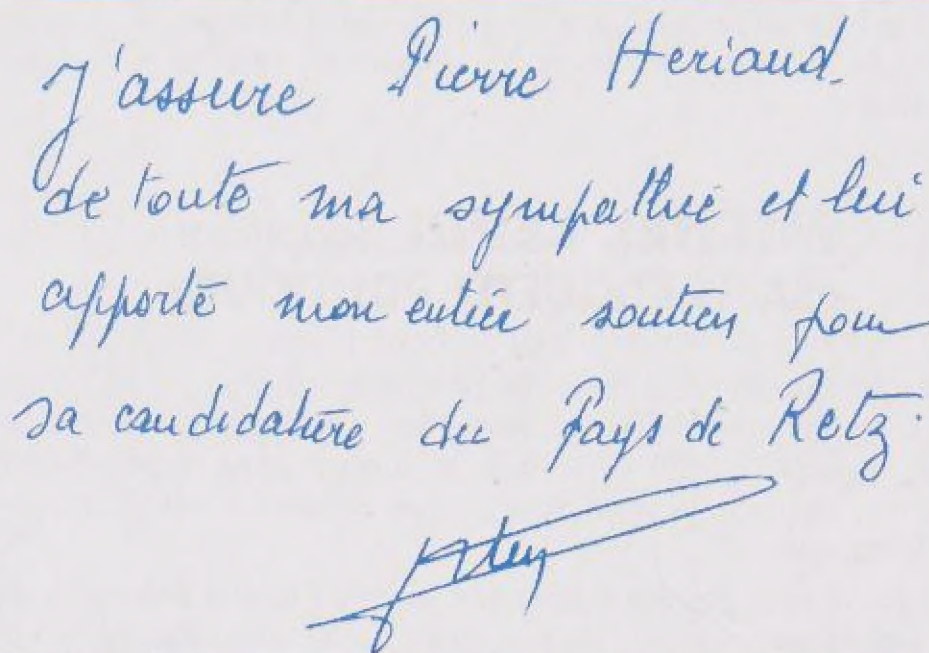 J'assure Pierre Heriaud
de toute ma sympathie et lui
apporte mon entier soutien pour
sa candidature du Pays de Retz.